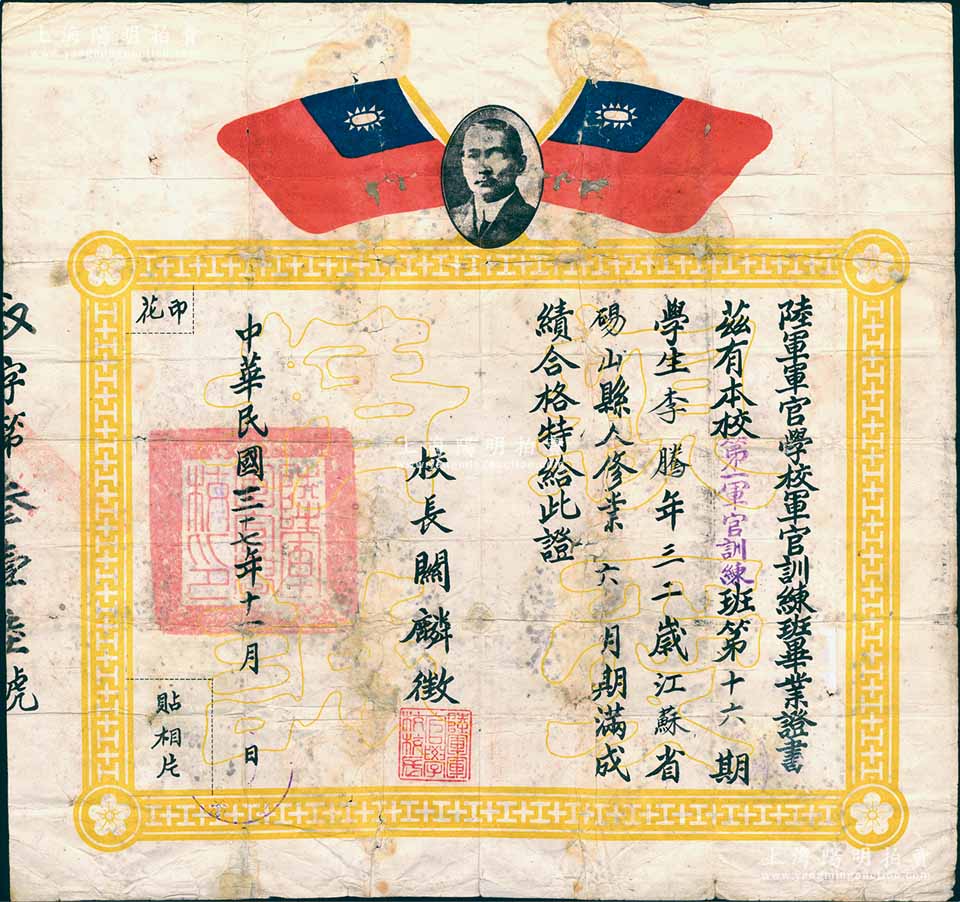 陸軍軍官學校軍官訓練班畢業證書
茲有本校第一軍官訓練班第十六期
學生李騰年三二歲江蘇省
碭山縣人修業六月期滿成
績合格特給此證
校長關麟徵
中華民國三十七年十一月 日
印花
貼相片
字第叁壹陸號
上海陽明拍賣
www.yangmingauction.com
上海陽明拍賣
www.yangmingauction.com
上海陽明拍賣
www.yangmingauction.com